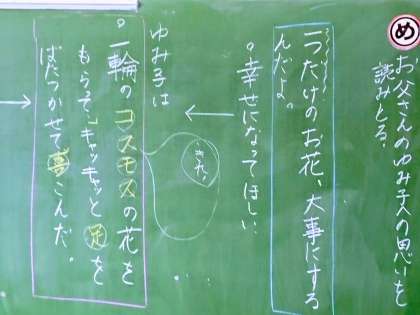 め
お父さんのゆみ子への思いを
読みとる。
一つだけのお花、大事にする
んだよ。
。幸せになってほしい、
ゆみ子は
。一輪のコスモスの花を
もらって、キャッキャッと足を
ばたつかせて喜こんだ。